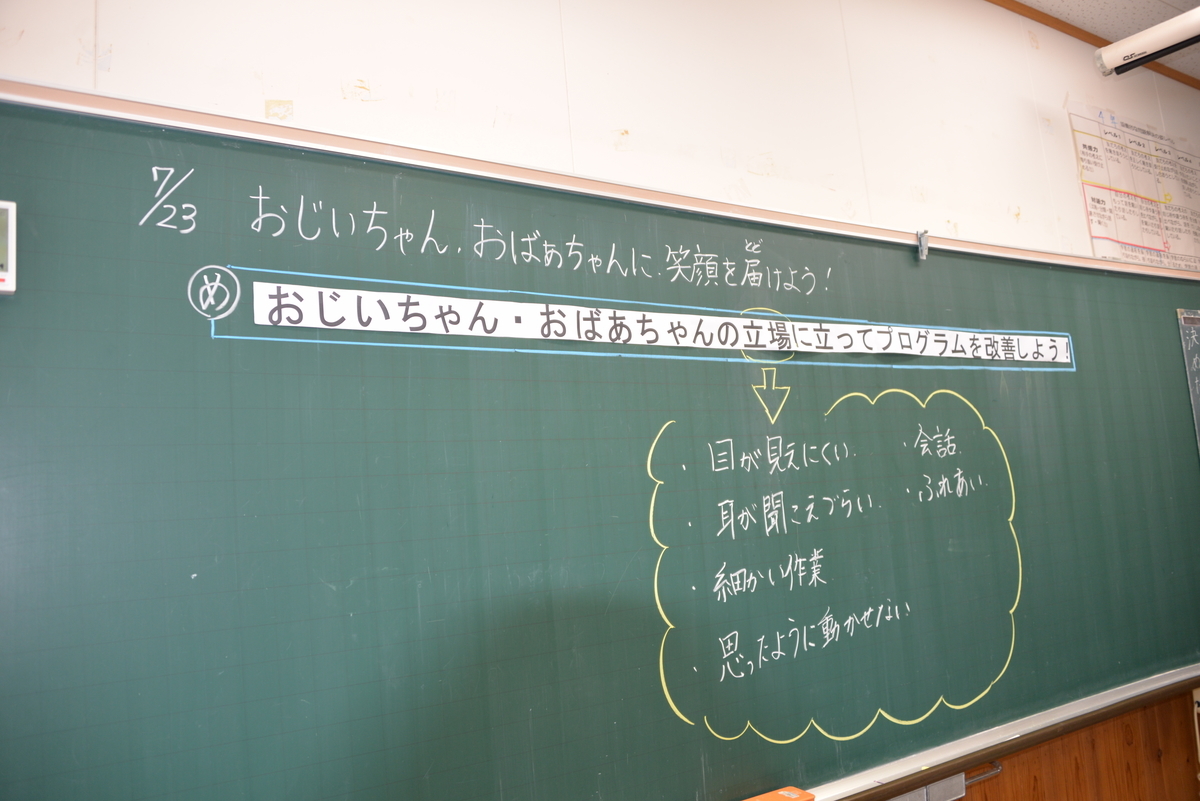 7/23 おじいちゃん、おばぁちゃんに、笑顔を届けよう！
とど
め おじいちゃん・おばあちゃんの立場に立ってプログラムを改善しよう！
・目が見えにくい。
・耳が聞こえづらい。
・細かい作業
・思ったように動かせない
・会話
・ふれあい
レベル1 レベル2
決め